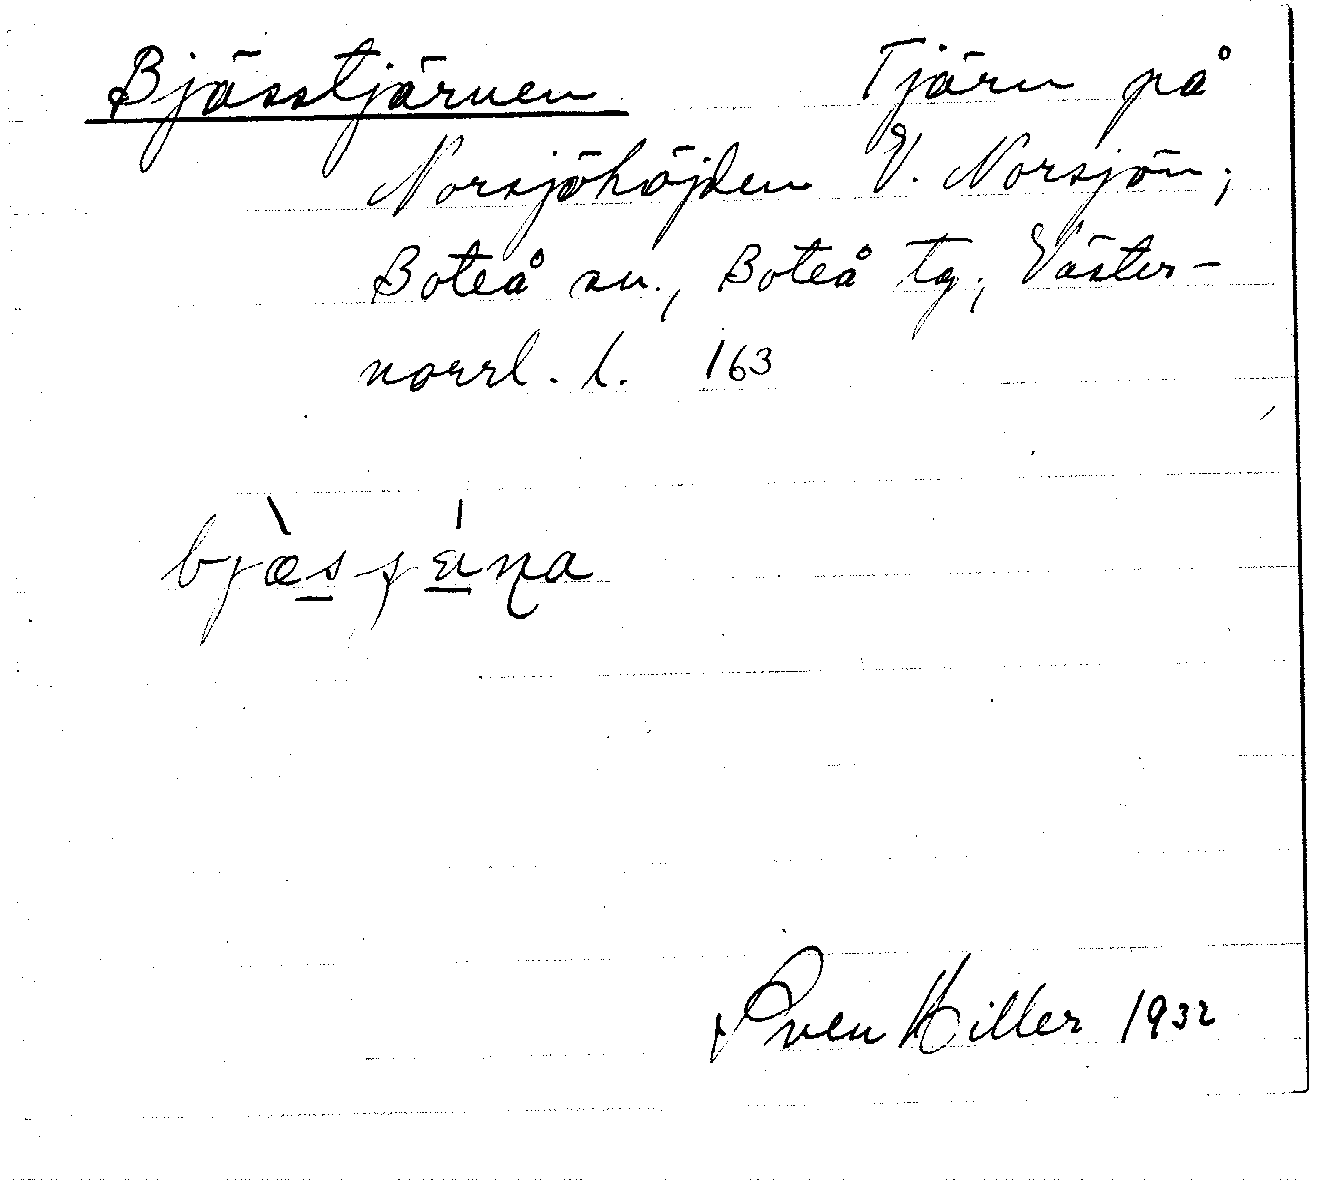 Bjässtjärnen Tjärn på
Norsjöhöjden V. Norsjön;
Boteå sn., Boteå tg; Väster-
norrl. l. 163
Sven Hiller 1932